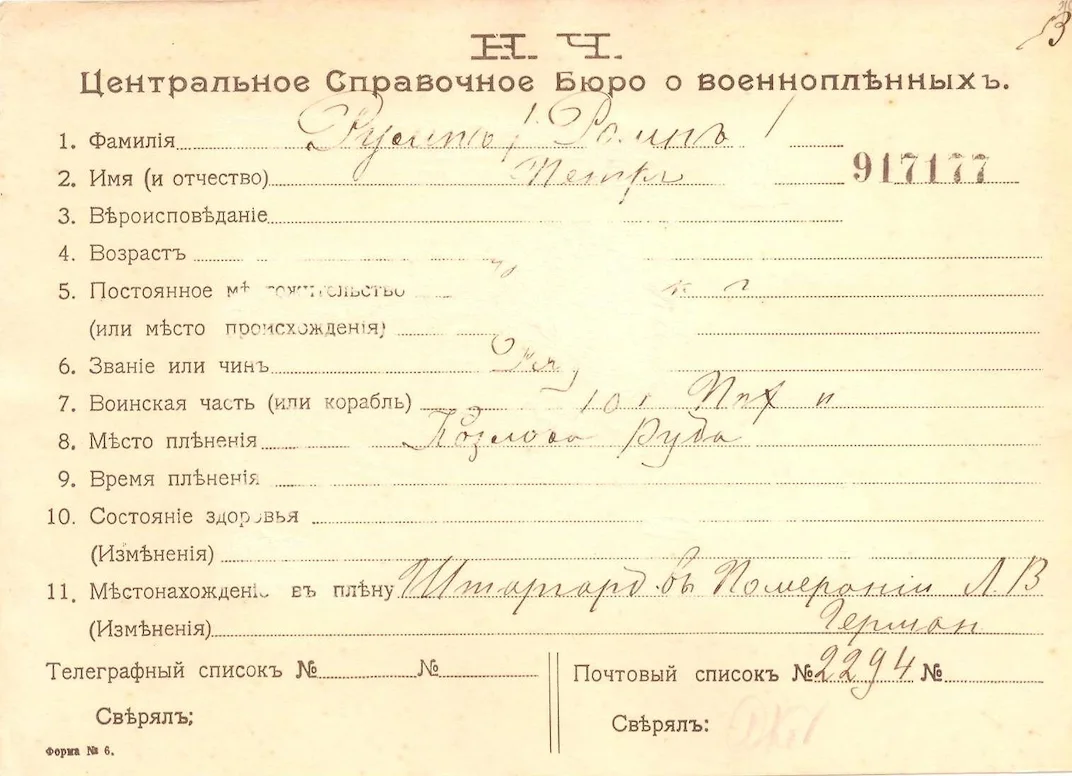 Н. Ч.
Центральное Справочное Бюро о военноплѣнныхъ.
1. Фамилія
2. Имя (и отчество) Петръ 917177
3. Вѣроисповѣданіе
4. Возрастъ
5. Постоянное мѣстожительство
(или мѣсто происхожденія)
6. Званіе или чинъ Ряд
7. Воинская часть (или корабль) 10
8. Мѣсто плѣненія Козлова Руда
9. Время плѣненія
10. Состояніе здоровья
(Измѣненія)
11. Мѣстонахожденіе въ плѣну Штаргард въ Помераніи Л. В
(Измѣненія) Герман
Телеграфный списокъ № № Почтовый списокъ № 2294 №
Свѣрялъ; Свѣрялъ:
Форма № 6.